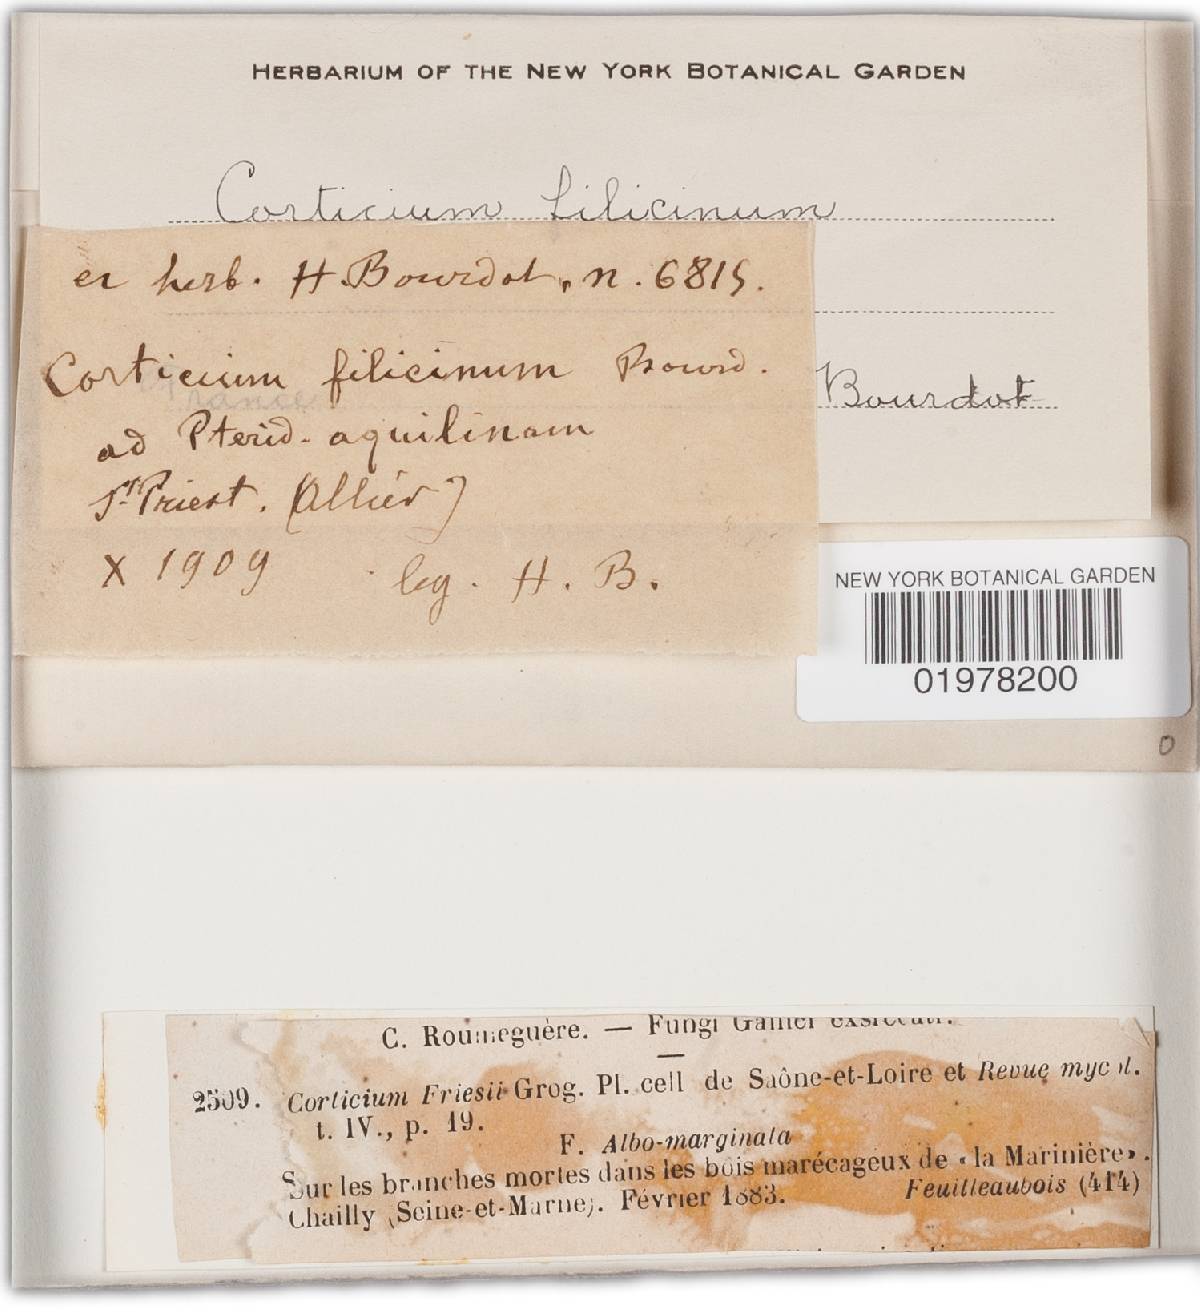 HERBARIUM OF THE NEW YORK BOTANICAL GARDEN
Corticium filicinum
ex herb. H. Bourdot, n. 6815.
Corticium filicinum Bourd.
France
Bourdot
ad Pterid. aquilinam
St Priest. (Allier)
X 1909 leg. H. B.
NEW YORK BOTANICAL GARDEN
01978200
0
C. Roumeguère. — Fungi Gallici exsiccati.
2509. Corticium Friesii Grog. Pl. cell de Saône-et-Loire et Revue mycol.
t. IV., p. 19.
F. Albo-marginata
Sur les branches mortes dans les bois marécageux de « la Marinière ».
Chailly (Seine-et-Marne). Février 1883. Feuilleaubois (414)